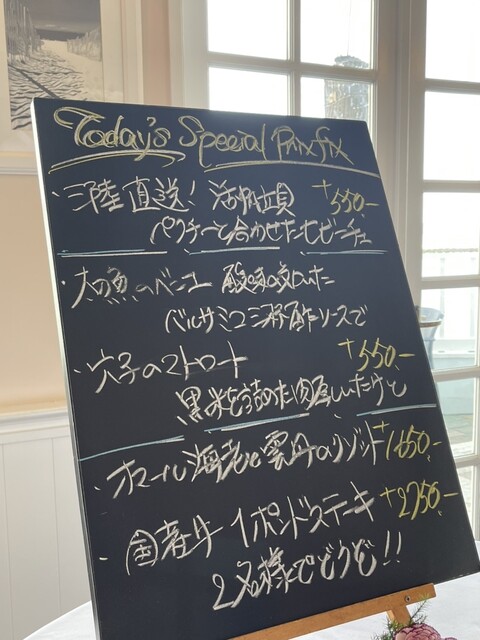 Today's Special Prix fix
・三陸直送!活帆立貝 +550-
パクチーと合わせたセビーチェ
・太刀魚のベニエ 酸味の効いた
バルサミコ三杯酢ソースで
・穴子のマトロート +550-
黒米を詰めた肉厚しいたけと
・オマール海老と雲丹のリゾット +1650-
・国産牛 1ポンドステーキ +2750-
2名様でどうぞ!!